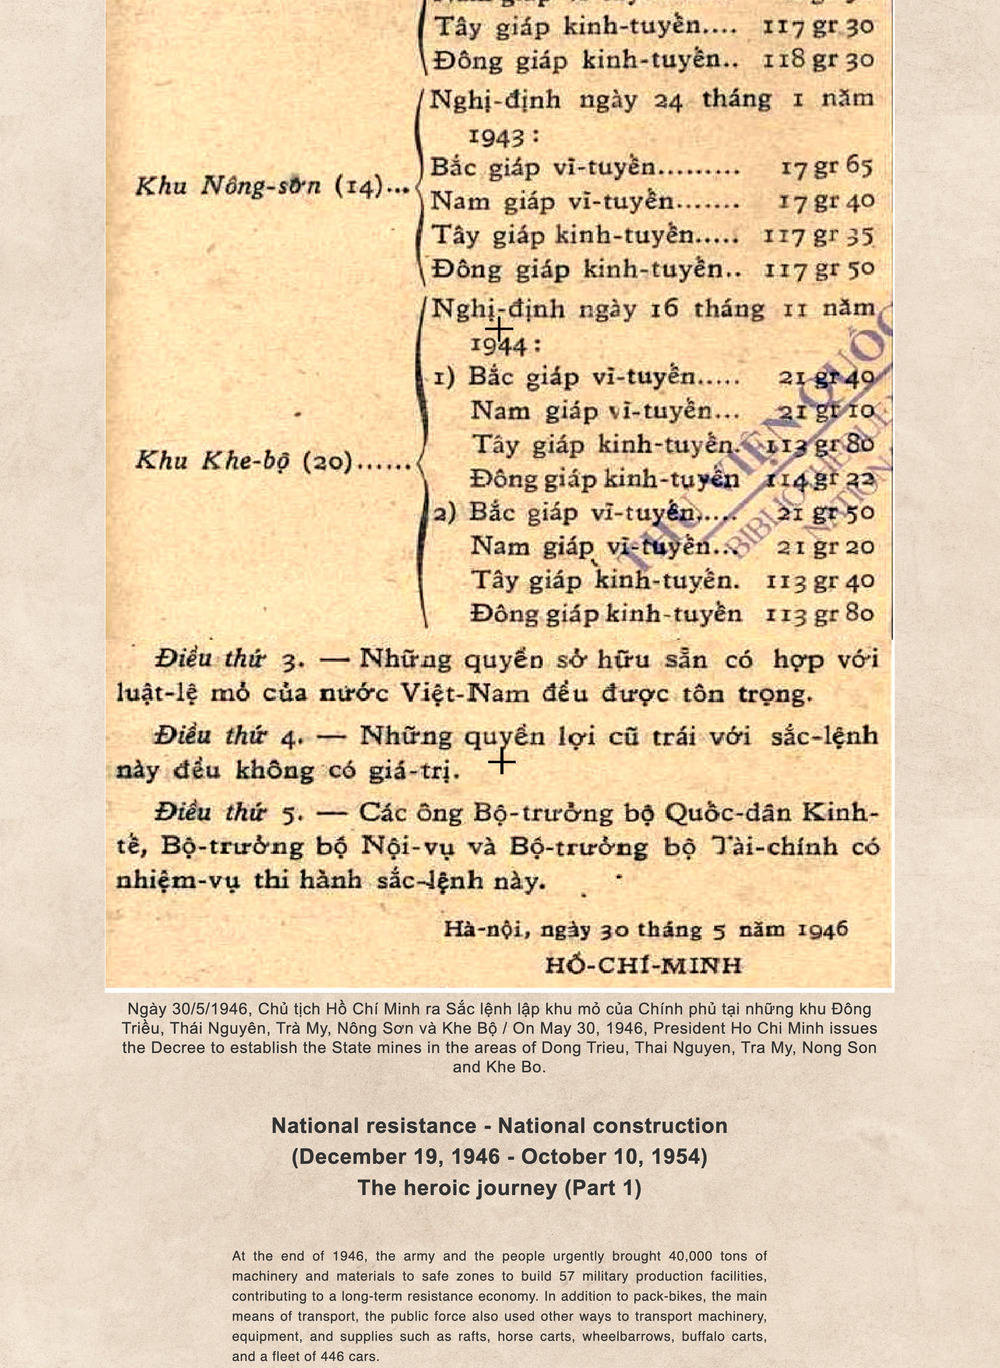 Tây giáp kinh-tuyến.... 117 gr 30
Đông giáp kinh-tuyến.. 118 gr 30
Nghị-định ngày 24 tháng 1 năm
1943 :
Khu Nông-sơn (14)...
Bắc giáp vĩ-tuyến......... 17 gr 65
Nam giáp vĩ-tuyến....... 17 gr 40
Tây giáp kinh-tuyến..... 117 gr 35
Đông giáp kinh-tuyến.. 117 gr 50
Nghị-định ngày 16 tháng 11 năm
1944 :
1) Bắc giáp vĩ-tuyến..... 21 gr 40
Nam giáp vĩ-tuyến... 21 gr 10
Tây giáp kinh-tuyến. 113 gr 80
Khu Khe-bộ (20)......
Đông giáp kinh-tuyến 114 gr 22
2) Bắc giáp vĩ-tuyến..... 21 gr 50
Nam giáp vĩ-tuyến... 21 gr 20
Tây giáp kinh-tuyến. 113 gr 40
Đông giáp kinh-tuyến 113 gr 80
THƯ VIỆN QUỐC
BIBLIOTHEQUE
NATION
Điều thứ 3. — Những quyền sở hữu sẵn có hợp với
luật-lệ mỏ của nước Việt-Nam đều được tôn trọng.
Điều thứ 4. — Những quyền lợi cũ trái với sắc-lệnh
này đều không có giá-trị.
Điều thứ 5. — Các ông Bộ-trưởng bộ Quốc-dân Kinh-
tế, Bộ-trưởng bộ Nội-vụ và Bộ-trưởng bộ Tài-chính có
nhiệm-vụ thi hành sắc-lệnh này.
Hà-nội, ngày 30 tháng 5 năm 1946
HỒ-CHÍ-MINH
Ngày 30/5/1946, Chủ tịch Hồ Chí Minh ra Sắc lệnh lập khu mỏ của Chính phủ tại những khu Đông
Triều, Thái Nguyên, Trà My, Nông Sơn và Khe Bộ / On May 30, 1946, President Ho Chi Minh issues
the Decree to establish the State mines in the areas of Dong Trieu, Thai Nguyen, Tra My, Nong Son
and Khe Bo.
National resistance - National construction
(December 19, 1946 - October 10, 1954)
The heroic journey (Part 1)
At the end of 1946, the army and the people urgently brought 40,000 tons of
machinery and materials to safe zones to build 57 military production facilities,
contributing to a long-term resistance economy. In addition to pack-bikes, the main
means of transport, the public force also used other ways to transport machinery,
equipment, and supplies such as rafts, horse carts, wheelbarrows, buffalo carts,
and a fleet of 446 cars.